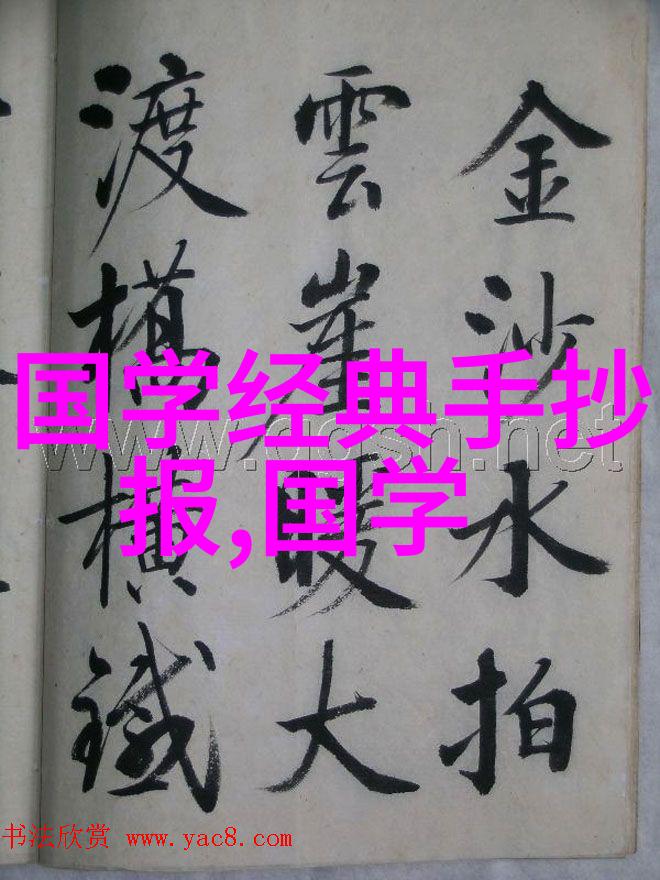 金沙水拍
雲崖暖大
渡橋橫鐵
国学经典手抄
报,国学
书法欣赏 www.yac8.com